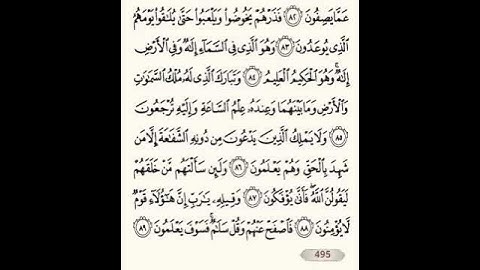 عَمَّا يَصِفُونَ ﴿٨٢﴾ فَذَرْهُمْ يَخُوضُوا۟ وَيَلْعَبُوا۟ حَتَّىٰ يُلَـٰقُوا۟ يَوْمَهُمُ
ٱلَّذِى يُوعَدُونَ ﴿٨٣﴾ وَهُوَ ٱلَّذِى فِى ٱلسَّمَآءِ إِلَـٰهٌ وَفِى ٱلْأَرْضِ
إِلَـٰهٌ ۚ وَهُوَ ٱلْحَكِيمُ ٱلْعَلِيمُ ﴿٨٤﴾ وَتَبَارَكَ ٱلَّذِى لَهُۥ مُلْكُ ٱلسَّمَـٰوَٰتِ
وَٱلْأَرْضِ وَمَا بَيْنَهُمَا وَعِندَهُۥ عِلْمُ ٱلسَّاعَةِ وَإِلَيْهِ تُرْجَعُونَ
﴿٨٥﴾ وَلَا يَمْلِكُ ٱلَّذِينَ يَدْعُونَ مِن دُونِهِ ٱلشَّفَـٰعَةَ إِلَّا مَن
شَهِدَ بِٱلْحَقِّ وَهُمْ يَعْلَمُونَ ﴿٨٦﴾ وَلَئِن سَأَلْتَهُم مَّنْ خَلَقَهُمْ
لَيَقُولُنَّ ٱللَّهُ ۖ فَأَنَّىٰ يُؤْفَكُونَ ﴿٨٧﴾ وَقِيلِهِۦ يَـٰرَبِّ إِنَّ هَـٰٓؤُلَآءِ قَوْمٌ
لَّا يُؤْمِنُونَ ﴿٨٨﴾ فَٱصْفَحْ عَنْهُمْ وَقُلْ سَلَـٰمٌ ۚ فَسَوْفَ يَعْلَمُونَ ﴿٨٩﴾
495